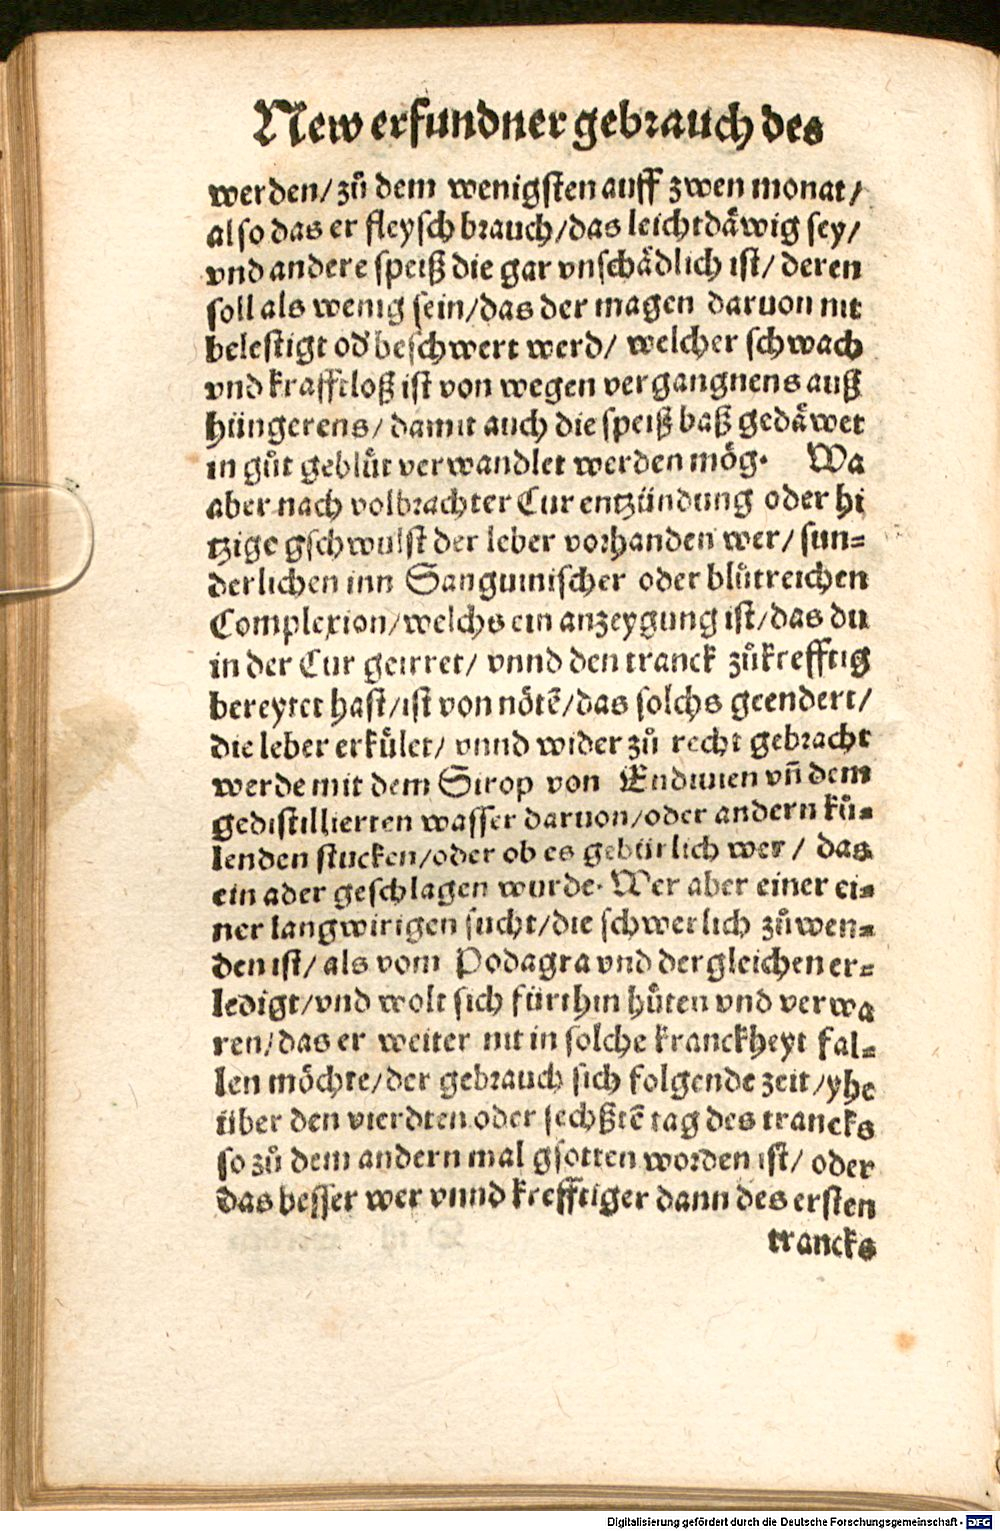 New erfundner gebrauch des
werden/ zů dem wenigsten auff zwen monat/
also das er fleysch brauch/das leichtdåwig sey/
vnd andere speiß die gar vnschådlich ist/ deren
soll als wenig sein/das der magen daruon nit
belestigt od' beschwert werd/ welcher schwach
vnd krafftloß ist von wegen vergangnens auß
hüngerens/ damit auch die speiß baß gedåwet
in gůt geblůt verwandlet werden mög. Wa
aber nach volbrachter Cur entzündung oder hi
tzige gschwulst der leber vorhanden wer/ sun=
derlichen inn Sanguinischer oder blůtreichen
Complexion/welchs ein anzeygung ist/das du
in der Cur geirret/ vnnd den tranck zůkrefftig
bereytet hast/ist von nötē/das solchs geendert/
die leber erkület/ vnnd wider zů recht gebracht
werde mit dem Sirop von Endiuien vñ dem
gedistillierten wasser daruon/oder andern kü=
lenden stucken/oder ob es gebürlich wer/ das
ein ader geschlagen wurde. Wer aber einer ei=
ner langwirigen sucht/die schwerlich zůwen=
den ist/ als vom Podagra vnd dergleichen er=
ledigt/vnd wolt sich fürthin hůten vnd verwa
ren/das er weiter nit in solche kranckheyt fal=
len möchte/der gebrauch sich folgende zeit/yhe
über den vierdten oder sechßtē tag des trancks
so zů dem andern mal gsotten worden ist/ oder
das besser wer vnnd krefftiger dann des ersten
trancks
Digitalisierung gefördert durch die Deutsche Forschungsgemeinschaft - DFG